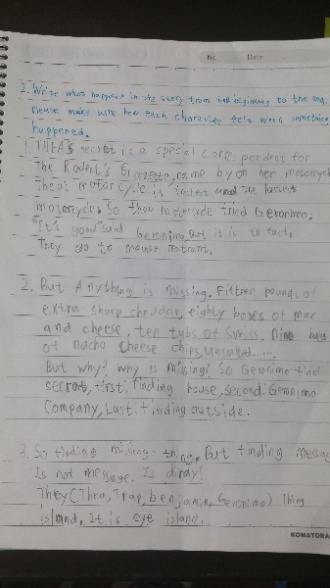 No. Date
2. Write what happened in the story from the beginning to the end.
please make sure how each character felt when something
happened.
1. THEA'S secret is a special for
The Rodent's Gazette, came by on her motorcycle
Thea's motor cycle is fastest and
motorcycle. So Thea tried Geronimo.
It's good said Geronimo, but it is to fast.
They go to mouse
2. But Anything is missing. Fifteen pounds of
extra sharp cheddar, eighty boxes of mac
and cheese, ten tubs of Swiss, Nine bags
of nacho cheese chips, unsalted.....
But why? why is missing? So Geronimo find
secret, first: finding house, second: Geronimo
Company, Last: finding outside.
3. So finding missing But finding message
Is not message. Is diray!
They (Thea, Trap, benjamin, Geronimo) Thing
island. It is eye island.
KOMATORA